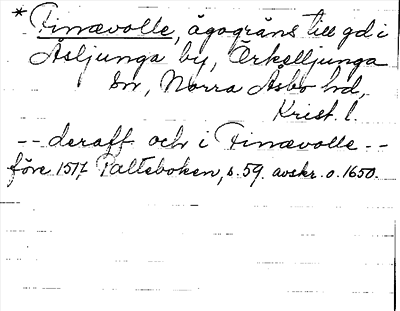 * Finævolle, ägogräns till gd i
Åsljunga by, Örkelljunga
sn, Norra Åsbo hd,
Krist. l.
-- deraff och i Finævolle --
före 1517 Palteboken, s. 59. avskr. o. 1650.